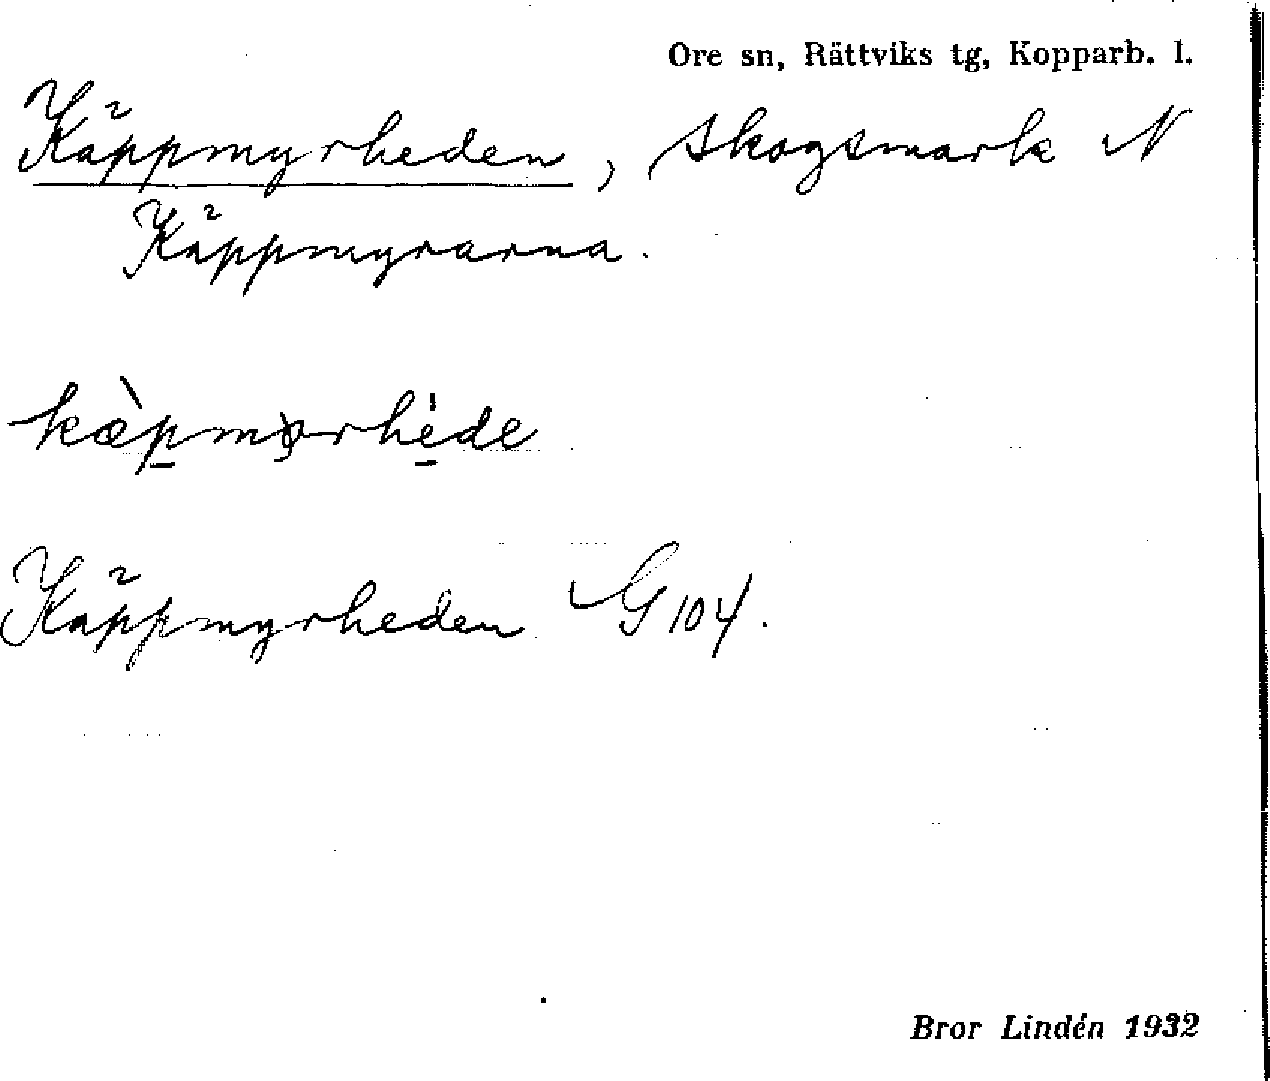 Ore sn, Rättviks tg, Kopparb. l.
Käppmyrheden, skogsmark N
Käppmyrarna.
Käppmyrheden G 104.
Bror Lindén 1932